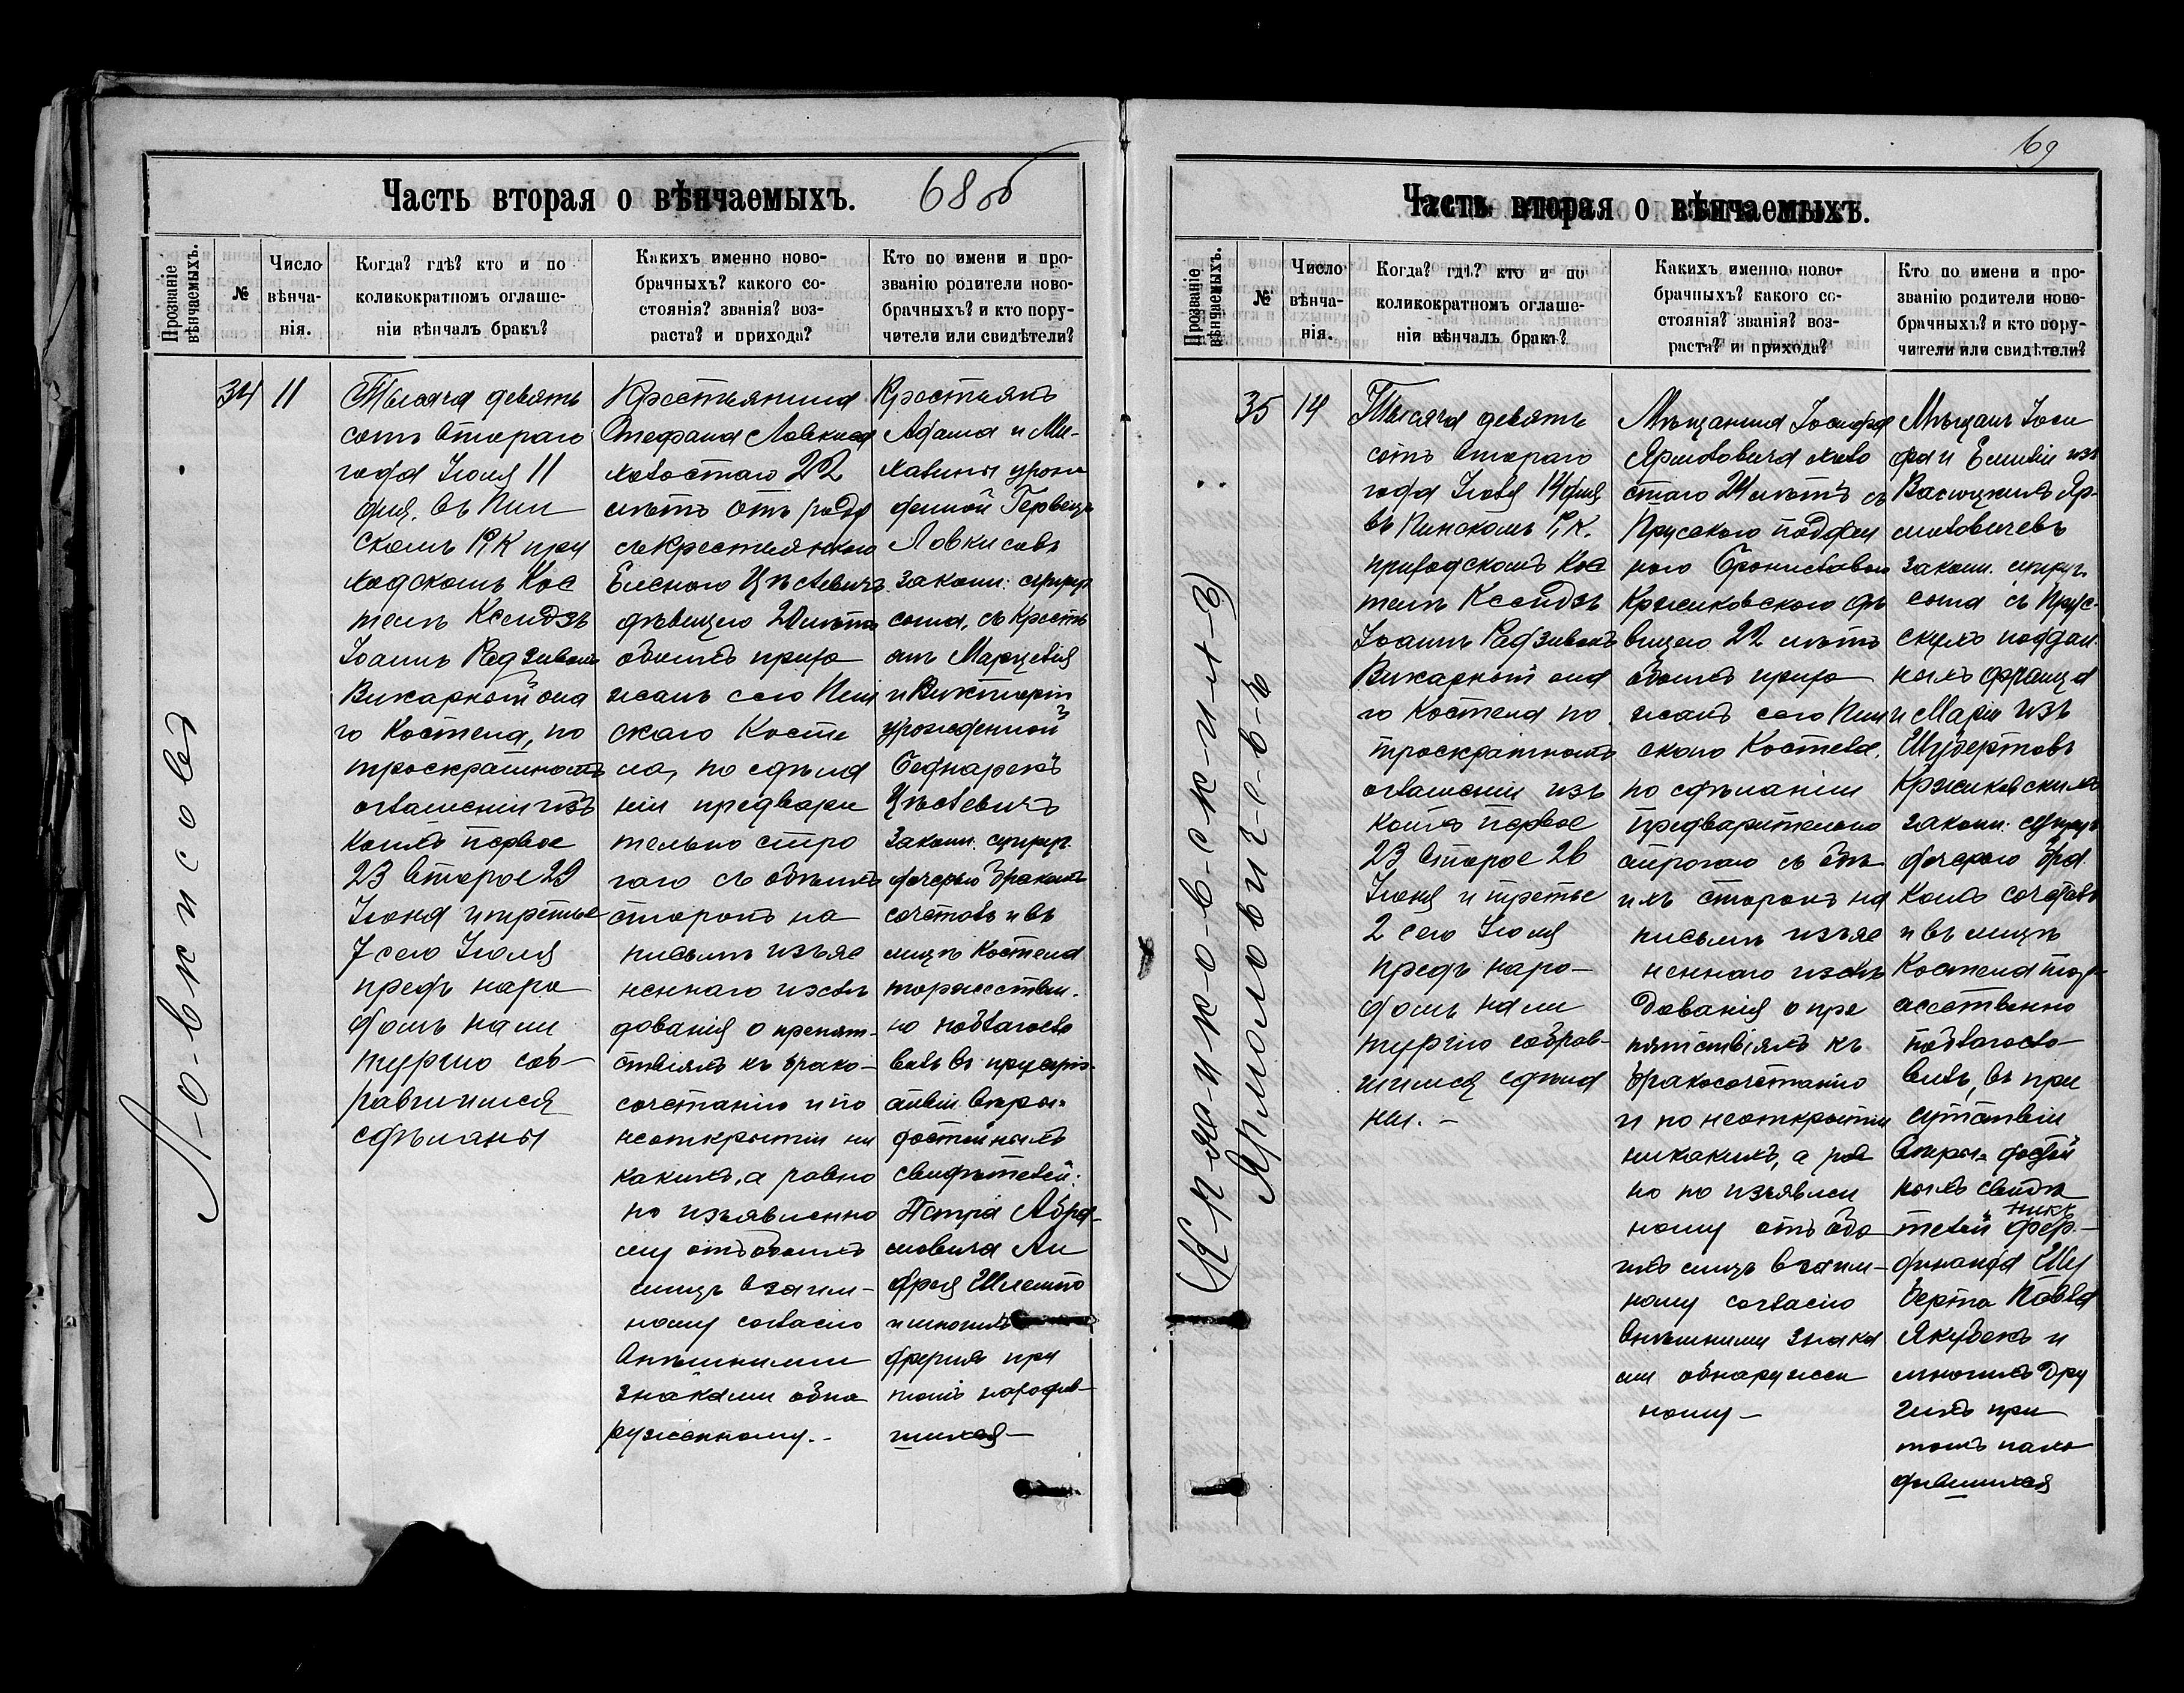 Часть вторая о вѣнчаемыхъ.
68об
Прозваніе вѣнчаемыхъ.
№
Число вѣнча-
нія.
Когда? гдѣ? кто и по
коликократномъ оглаше-
ніи вѣнчалъ бракъ?
Какихъ именно ново-
брачныхъ? какого со-
стоянія? званія? воз-
раста? и прихода?
Кто по имени и про-
званію родители ново-
брачныхъ? и кто пору-
чители или свидѣтели?
Л-о-вкисовъ
34
11
Тысяча девять
сотъ второго
года Іюля 11
дня, въ Пин
скомъ Р, К при
ходскомъ Кос
телѣ Ксендзъ
Іоаннъ Радзивонъ
Викарный она
го Костела, по
троекратномъ
оглашеніи изъ
коихъ первое
23 второе 29
Іюня и третье
7 сего Іюля
предъ наро
домъ на ли
тургію соб-
равшимся
сдѣланы
Крестьянина
Стефана Ловкиса
холостаго 22
лѣтъ отъ роду
съ Крестьянкою
Еленою Цѣслевичъ
дѣвицею 20 лѣтъ
обоихъ прихо
жанъ сего Пин
скаго Косте
ла, по сдѣла
ніи предвари
тельно стро
гаго съ обѣихъ
сторонъ на
письмѣ изъяс
неннаго изслѣ
дованія о препят-
ствіяхъ къ брако-
сочетанію и по
неоткрытіи ни
какихъ, а равно
по изъявленно
му отъ обоихъ
лицъ взаим-
ному согласію
внѣшними
знаками обна
руженному.-
Крестьянъ
Адама и Ми-
халины урож
денной Гервецъ
Ловкисовъ
законн: супруг
сына, съ Кресть
янъ Марцелія
и Викторіи
урожденной
Беднарекъ
Цѣслевичъ
законн. супруг.
дочерью бракомъ
сочеталъ и въ
лицѣ Костела
торжествен.
но поблагосло
вилъ въ присут-
ствіи вѣры-
достойныхъ
свидѣтелей:
Петра Абра-
мовича Ан
дрея Шлемпо
и многихъ
другихъ при
томъ находив-
шихся-
69
Часть вторая о вѣнчаемыхъ.
Прозваніе вѣнчаемыхъ.
№
Число вѣнча-
нія.
Когда? гдѣ? кто и по
коликократномъ оглаше-
ніи вѣнчалъ бракъ?
Какихъ именно ново-
брачныхъ? какого со-
стоянія? званія? воз-
раста? и прихода?
Кто по имени и про-
званію родители ново-
брачныхъ? и кто пору-
чители или свидѣтели?
Ярмоловиче-в-ъ
35
14
Тысяча девять
сотъ второго
года Іюля 14 дня
въ Пинскомъ Р, К.
приходскомъ Кос
телѣ Ксендзъ
Іоаннъ Радзивонъ
Викарный она
го Костела по
троекратномъ
оглашеніи изъ
коихъ первое
23 второе 26
Іюня и третье
2 сего Іюля
предъ наро-
домъ на ли
тургію собрав-
шимся сдѣла
ны.-
Мѣщанина Іосифа
Ярмоловича холо
стаго 24 лѣтъ съ
Прусскою поддан
ною Брониславою
Кржиковскою дѣ
вицею 22 лѣтъ
обоихъ прихо
жанъ сего Пин
скаго Костела,
по сдѣланіи
предварительно
строгаго съ обѣ
ихъ сторонъ на
письмѣ изъяс
неннаго изслѣ
дованія о пре
пятствіяхъ къ
бракосочетанію
и по неоткрытіи
никакихъ, а рав
но по изъявлен
ному отъ обо
ихъ лицъ взаим-
ному согласію
внѣшними знака
ми обнаружен
ному-
Мѣщанъ Іоси
фа и Емиліи изъ
Ярмоловичевъ
законн. супруг.
сына съ Прус-
скихъ поддан.
ныхъ Франца
и Маріи изъ
Шубертовъ
Кржиковскихъ
законн: супруг.
дочерью бра
комъ сочеталъ
и въ лицѣ
Костела торж-
ественно
поблагосло-
вилъ, въ при
сутствіи
вѣры- достой
ныхъ свидѣ
телей Фер-
динанда Шу
берта Павла
Якубекъ и
многихъ дру
гихъ при
томъ нахо
дившихся